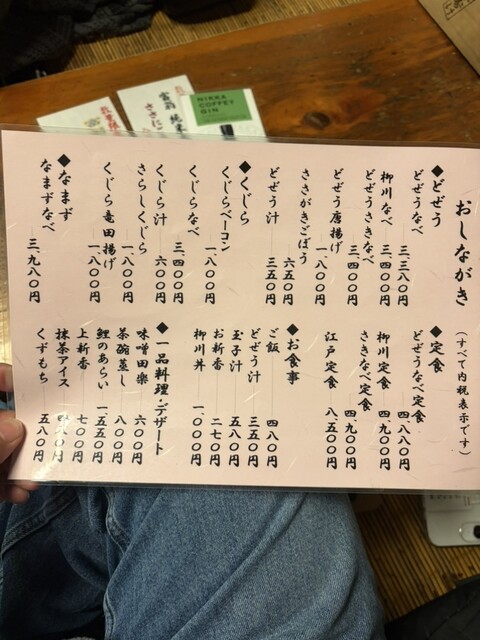 おしながき
(すべて内税表示です)
◆どぜう
どぜうなべ 三、三八〇円
柳川なべ 三、四〇〇円
どぜうさきなべ 三、四〇〇円
どぜう唐揚げ 一、八〇〇円
ささがきごぼう 六五〇円
どぜう汁 三五〇円
◆くじら
くじらベーコン 一、八〇〇円
くじらなべ 三、四〇〇円
くじら汁 六〇〇円
さらしくじら 一、八〇〇円
くじら竜田揚げ 一、八〇〇円
◆なまず
なまずなべ 三、九八〇円
◆定食
どぜうなべ定食 四、八八〇円
柳川定食 四、九〇〇円
さきなべ定食 四、九〇〇円
江戸定食 八、五〇〇円
◆お食事
ご飯 四八〇円
どぜう汁 三五〇円
玉子汁 五八〇円
お新香 二七〇円
柳川丼 一、〇〇〇円
◆一品料理・デザート
味噌田楽 六〇〇円
茶碗蒸し 八〇〇円
鯉のあらい 一、五五〇円
上新香 七〇〇円
抹茶アイス 四八〇円
くずもち 五八〇円
NIKKA
COFFEY
GIN